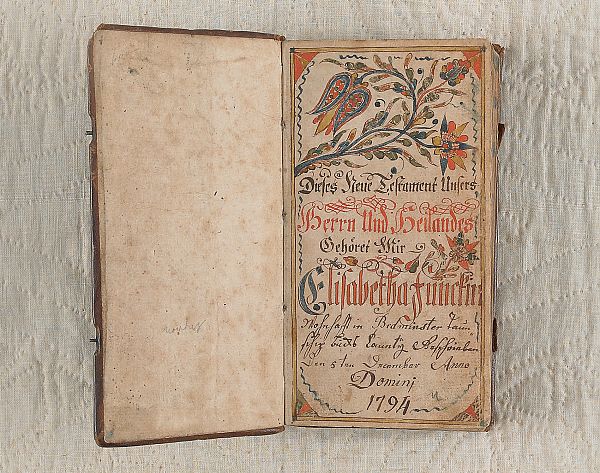 Dieses Neue Testament Unsers
Herrn Und Heilandes
Gehöret Mir
Elisabetha Funckin
Wohnhafft in Bedminster Taun„
schip Bucks County Geschrieben
Den 5ten December Anno
Domini
1794